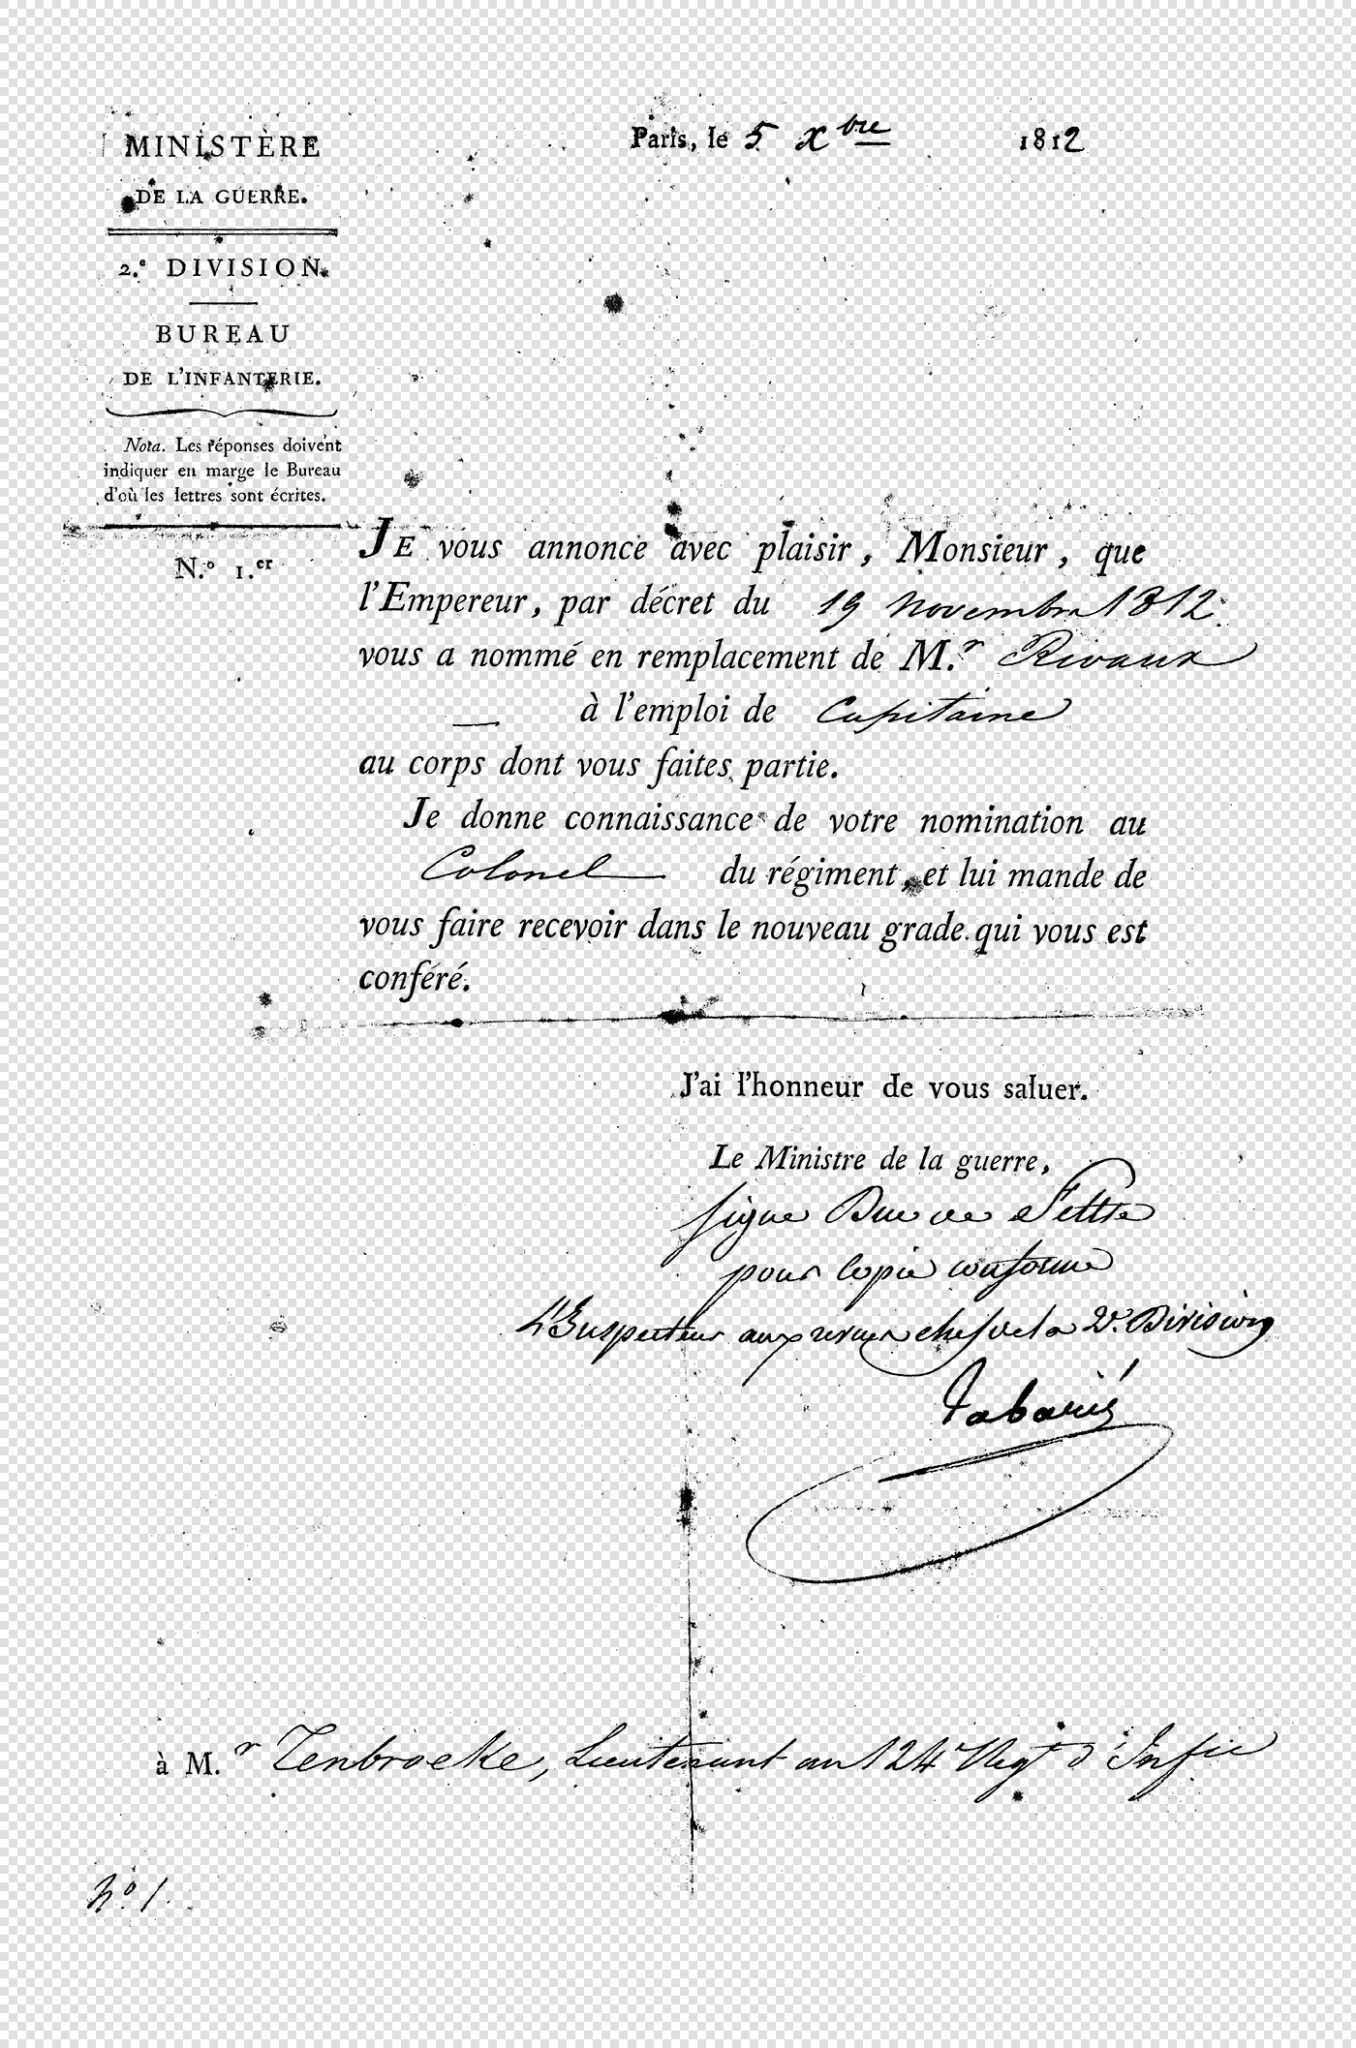 MINISTÈRE
DE LA GUERRE.
2.e DIVISION.
BUREAU
DE L'INFANTERIE.
Nota. Les réponses doivent
indiquer en marge le Bureau
d'où les lettres sont écrites.
N.o 1.er
Paris, le 5 Xbre 1812
JE vous annonce avec plaisir, Monsieur, que
l'Empereur, par décret du 19 Novembre 1812.
vous a nommé en remplacement de M.r Rivaux
— à l'emploi de Capitaine
au corps dont vous faites partie.
Je donne connaissance de votre nomination au
Colonel du régiment, et lui mande de
vous faire recevoir dans le nouveau grade qui vous est
conféré.
J'ai l'honneur de vous saluer.
Le Ministre de la guerre,
signé Duc de Feltre
pour copie conforme
L'Inspecteur aux revues chef de la 2e. Division
Tabarié
à M.r Tenbroeke, Lieutenant au 124 Regt d'Infie
No. 1.